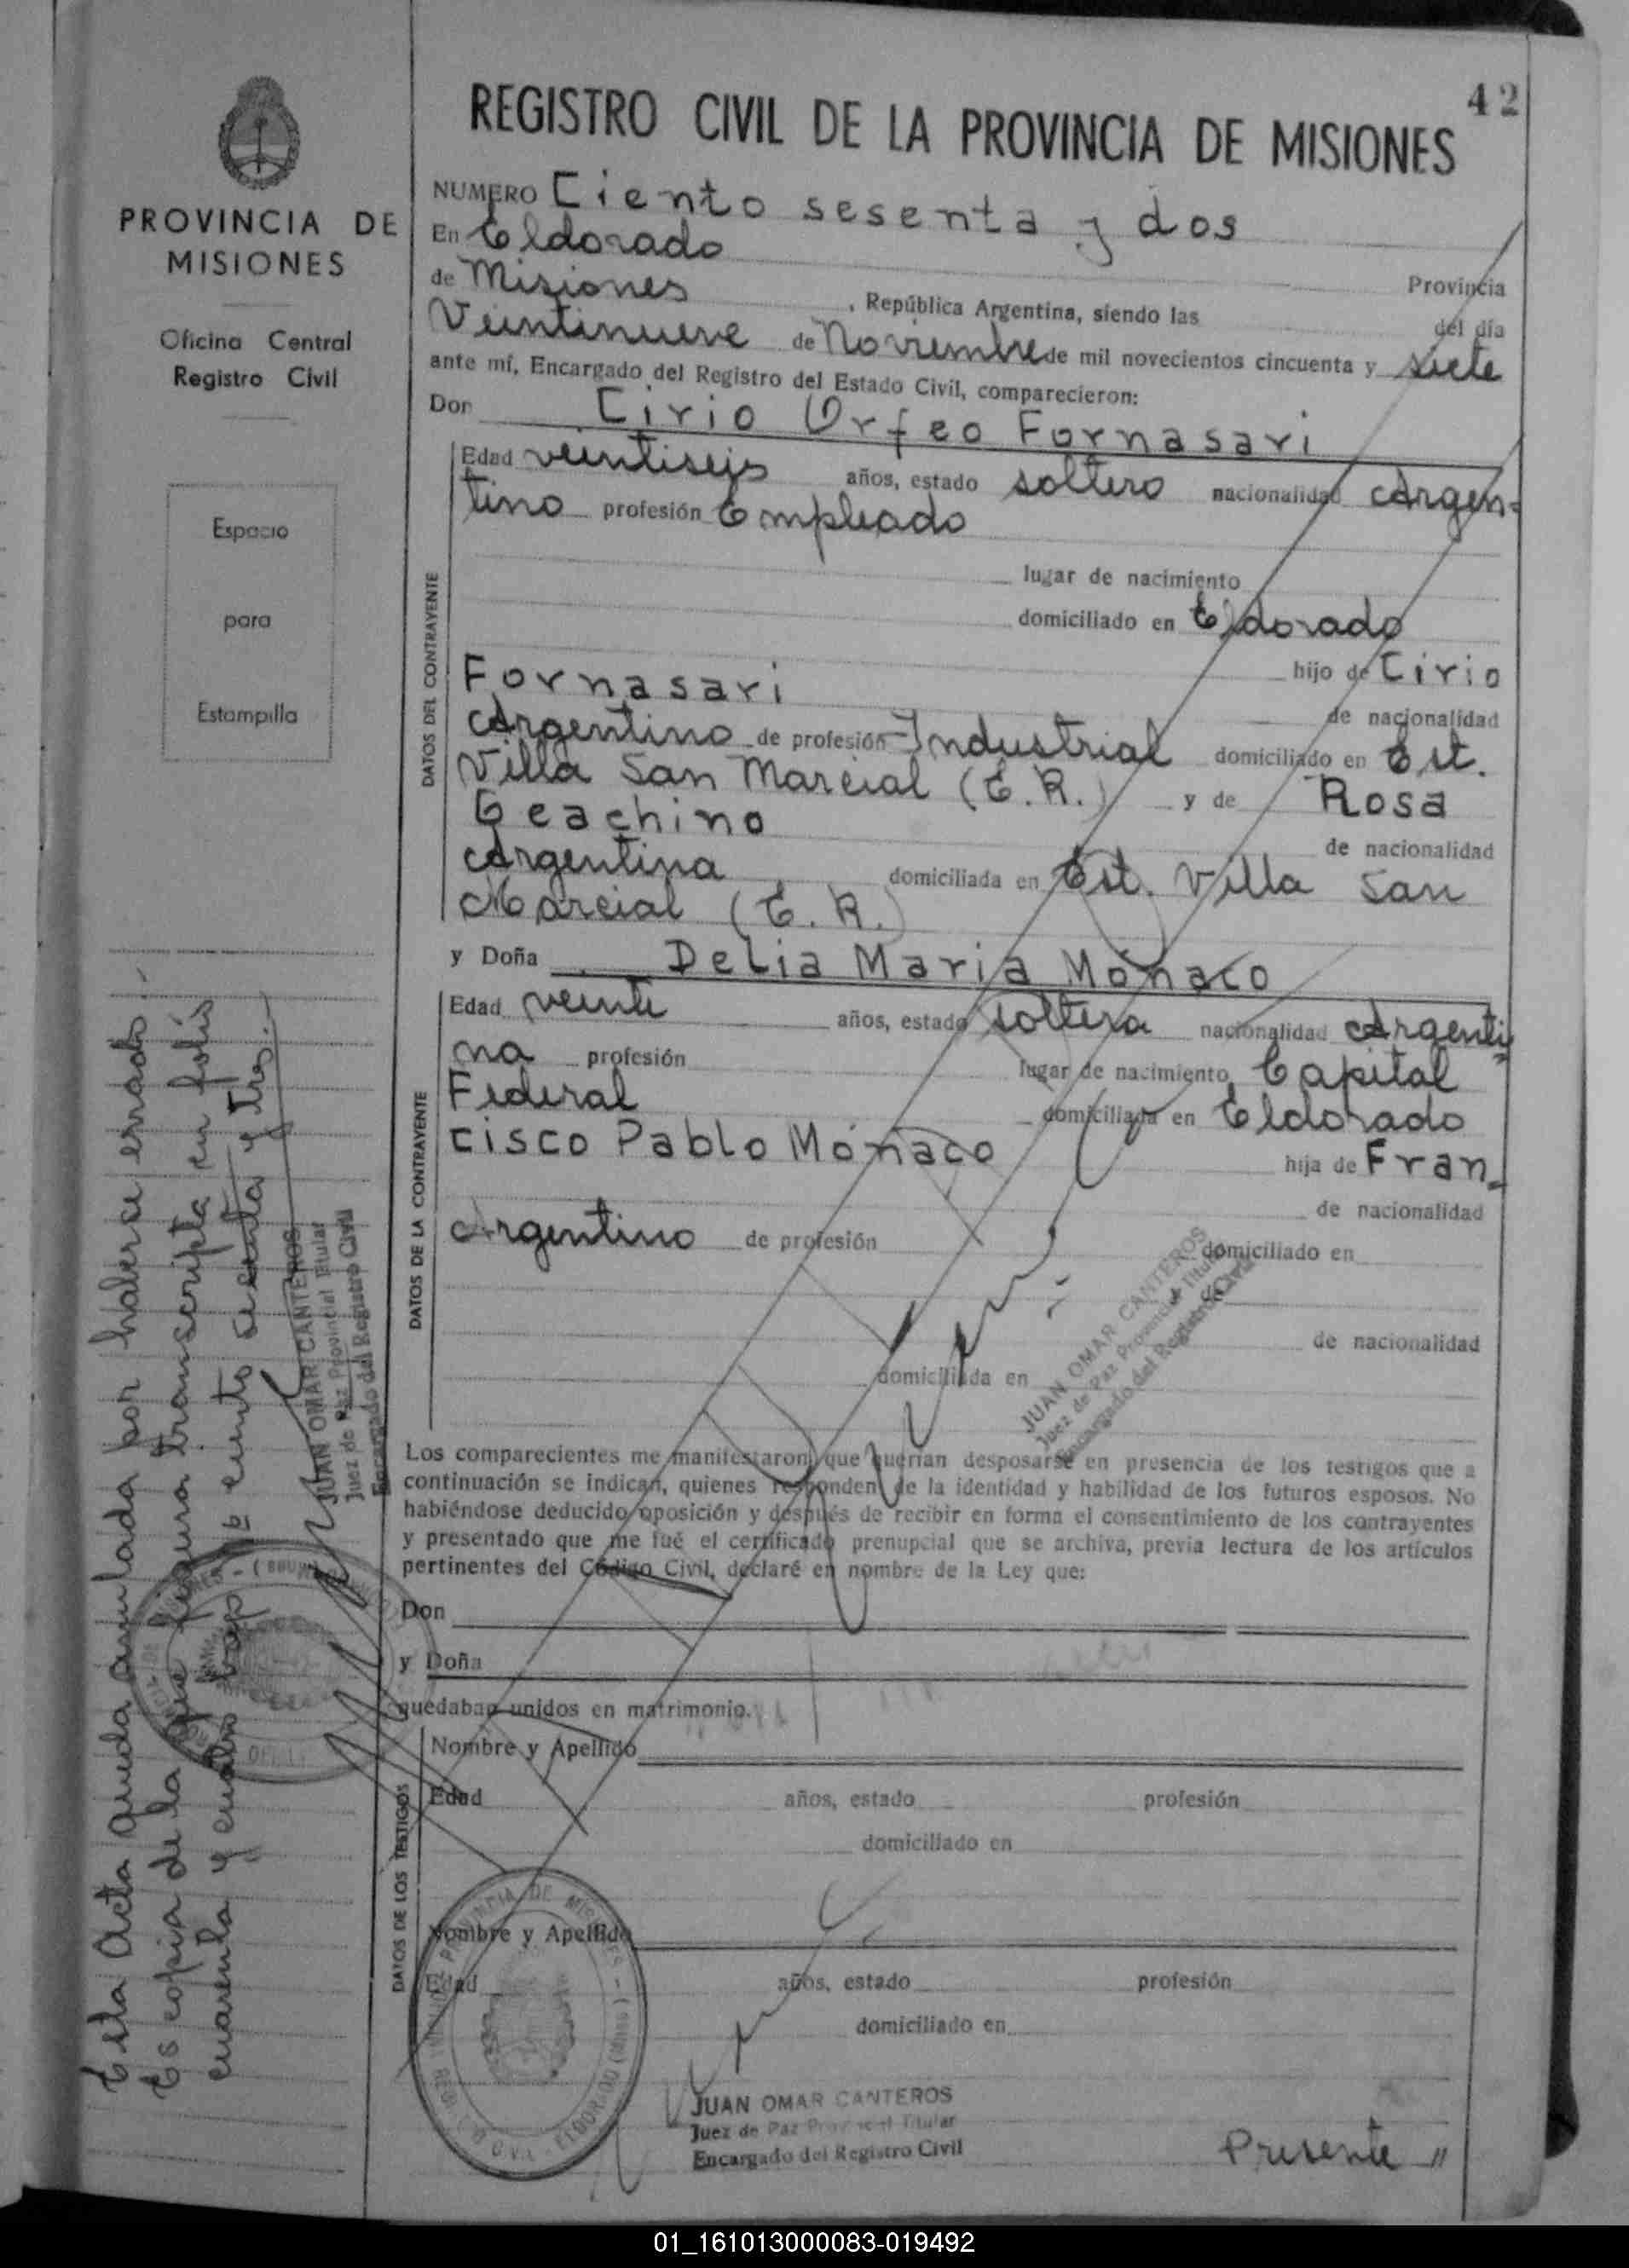 42
REGISTRO CIVIL DE LA PROVINCIA DE MISIONES
PROVINCIA DE
MISIONES
Oficina Central
Registro Civil
Espacio
para
Estampilla
NUMERO Ciento sesenta y dos
En Eldorado
Provincia
de Misiones, República Argentina, siendo las
del día
Veintinueve de Noviembre de mil novecientos cincuenta y siete
ante mí, Encargado del Registro del Estado Civil, comparecieron:
Don Cirio Orfeo Fornasari
DATOS DEL CONTRAYENTE
Edad veintiseis años, estado soltero nacionalidad Argen-
tino profesión Empleado
lugar de nacimiento
domiciliado en Eldorado
hijo de Cirio
Fornasari
de nacionalidad
Argentino de profesión Industrial domiciliado en Est.
Villa San Marcial (E.R.) y de Rosa
Geachino
de nacionalidad
Argentina domiciliada en Est. Villa San
Marcial (E.R.)
y Doña Delia Maria Mónaco
DATOS DE LA CONTRAYENTE
Edad veinte años, estado soltera nacionalidad Argenti
na profesión lugar de nacimiento Capital
Federal domiciliada en Eldorado
hija de Fran-
cisco Pablo Mónaco
de nacionalidad
Argentino de profesión domiciliado en
de nacionalidad
domiciliada en
JUAN OMAR CANTEROS
Juez de Paz Provincial Titular
Encargado del Registro Civil
Los comparecientes me manifestaron que querían desposarse en presencia de los testigos que a
continuación se indican, quienes responden de la identidad y habilidad de los futuros esposos. No
habiéndose deducido oposición y después de recibir en forma el consentimiento de los contrayentes
y presentado que me fué el certificado prenupcial que se archiva, previa lectura de los artículos
pertinentes del Código Civil, declaré en nombre de la Ley que:
Don
y Doña
quedaban unidos en matrimonio.
DATOS DE LOS TESTIGOS
Nombre y Apellido
Edad años, estado profesión
domiciliado en
Nombre y Apellido
Edad años, estado profesión
domiciliado en
JUAN OMAR CANTEROS
Juez de Paz Provincial Titular
Encargado del Registro Civil
Presente
Esta Acta queda anulada por haberse errado.
Es copia de la que figura transcripta en folis
cuarenta y cuatro bajo ciento sesenta y tres.
JUAN OMAR CANTEROS
Juez de Paz Provincial Titular
Encargado del Registro Civil
PROVINCIA DE MISIONES - ELDORADO (Mnes)
01_161013000083-019492